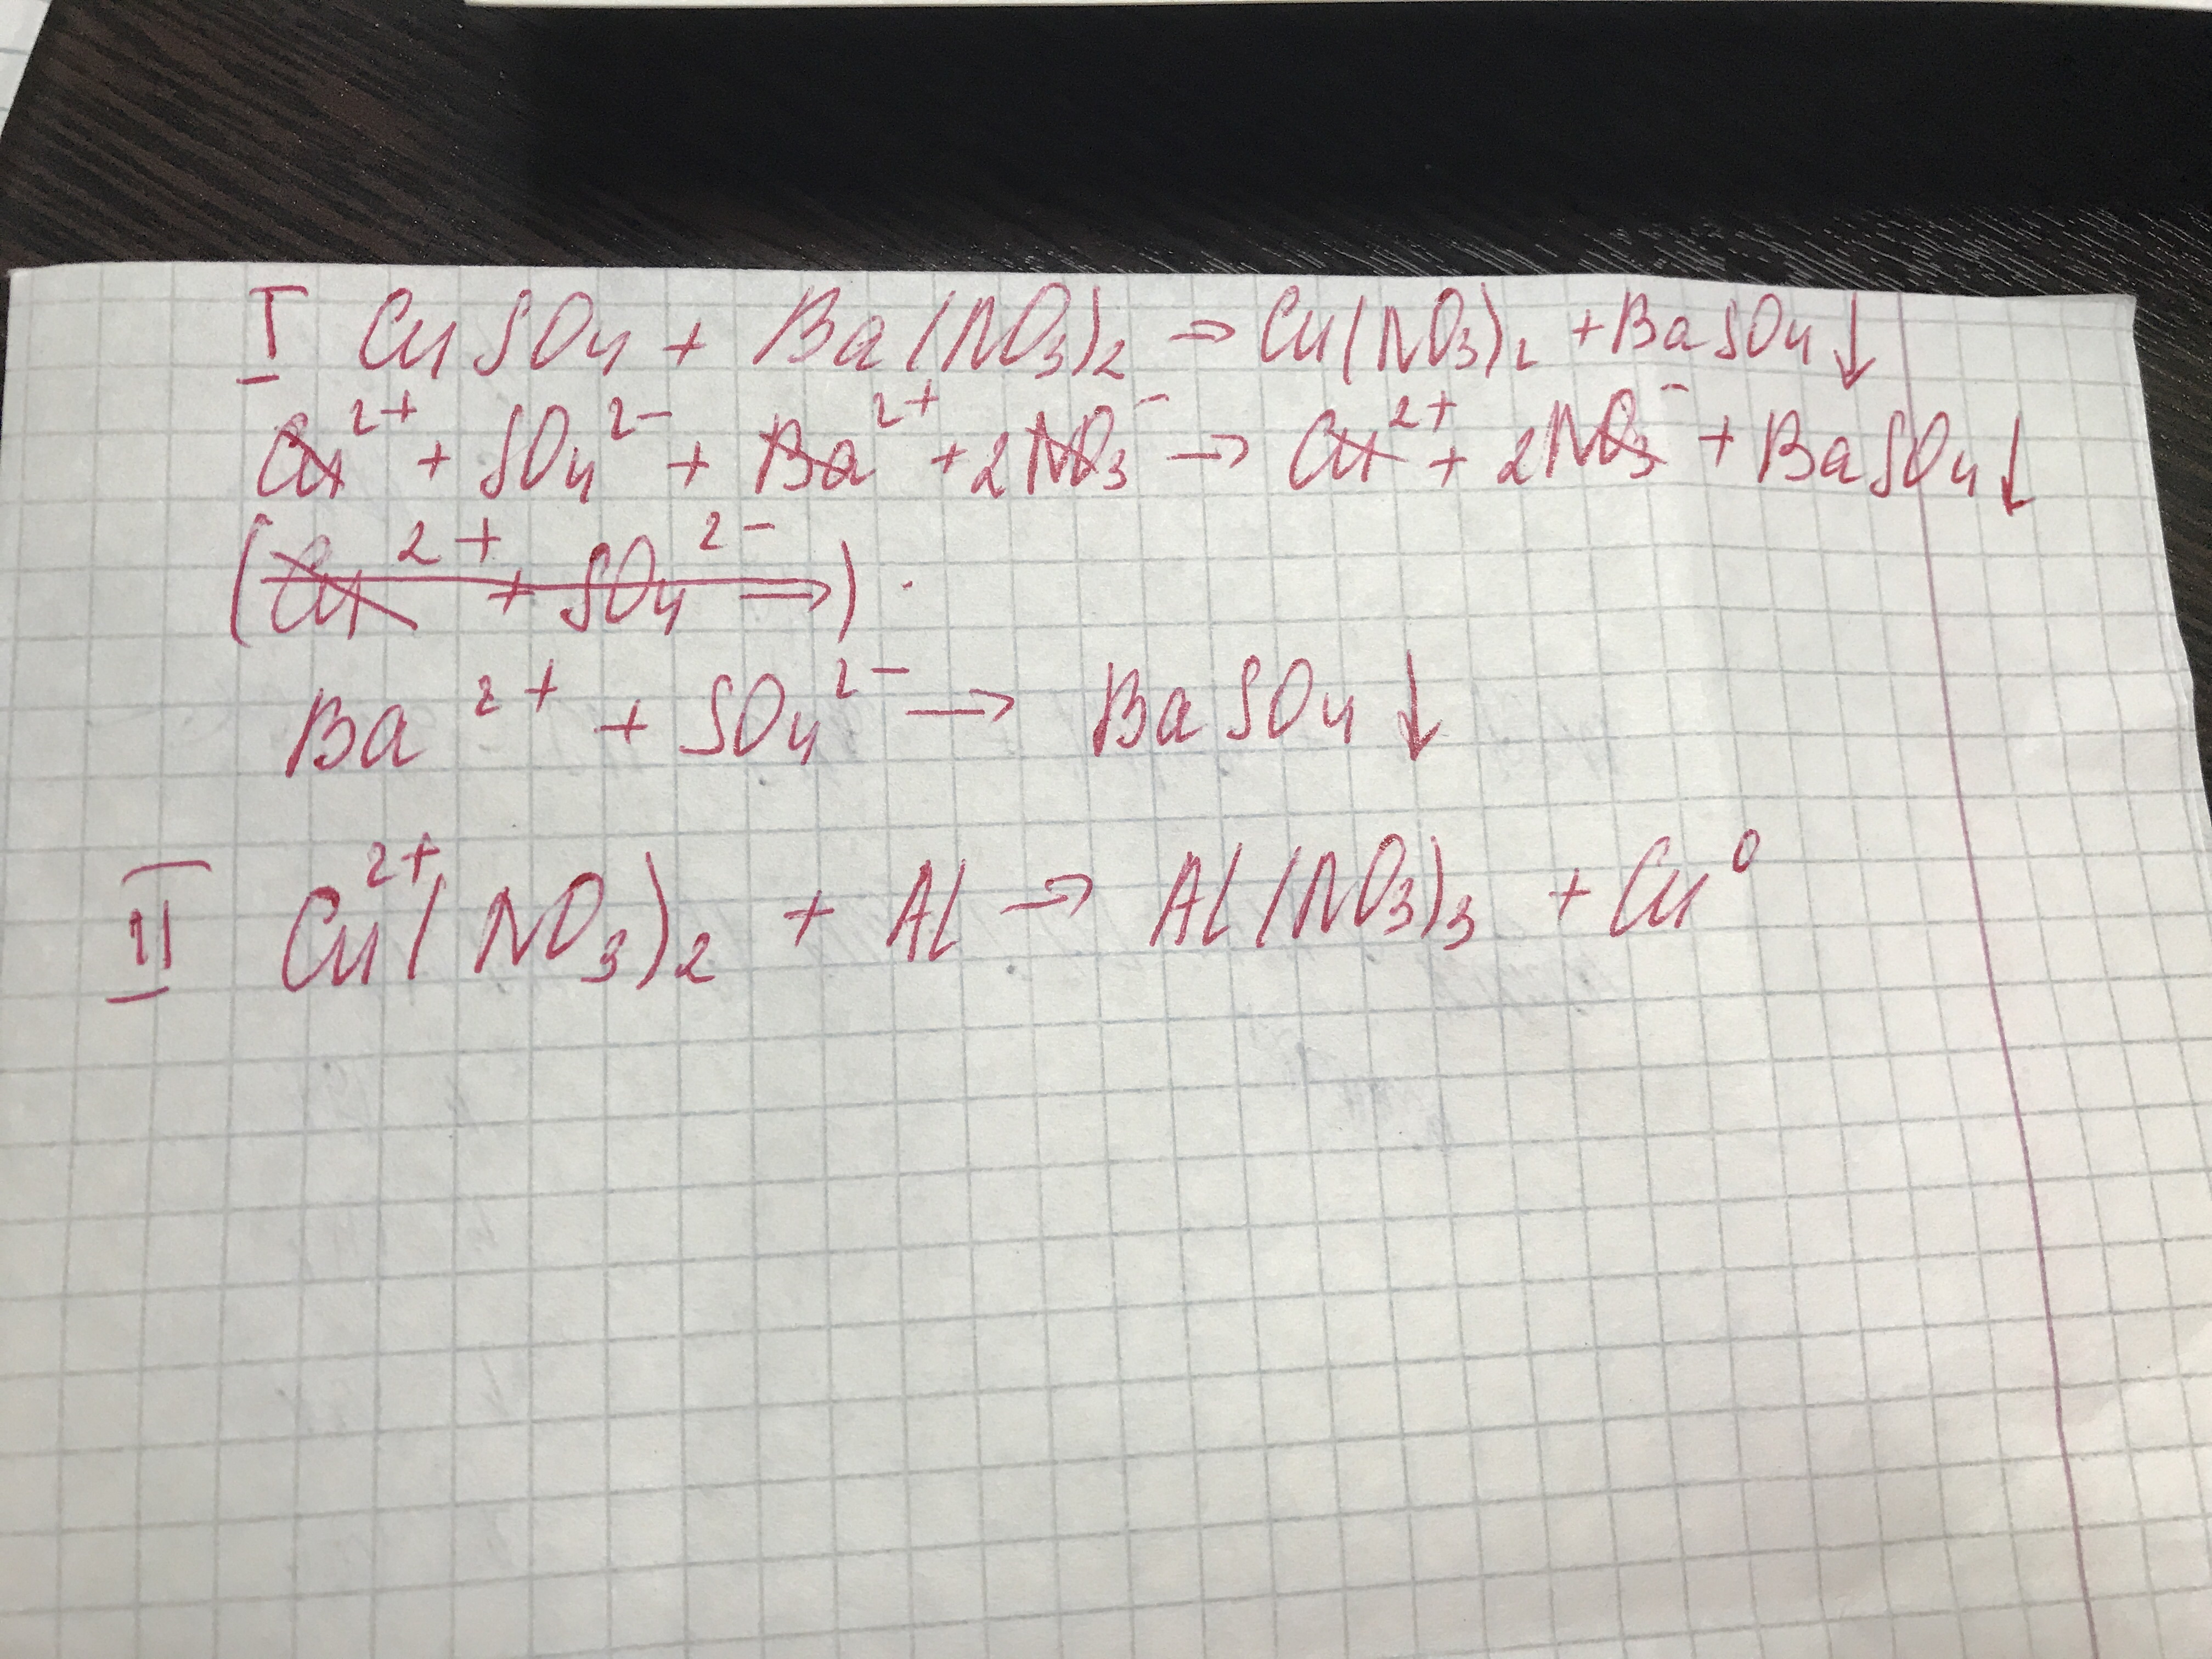 I CuSO₄ + Ba(NO₃)₂ → Cu(NO₃)₂ + BaSO₄↓
Cu²⁺ + SO₄²⁻ + Ba²⁺ + 2NO₃⁻ → Cu²⁺ + 2NO₃⁻ + BaSO₄↓
(Cu²⁺ + SO₄²⁻ →)
Ba²⁺ + SO₄²⁻ → BaSO₄↓
II Cu²⁺(NO₃)₂ + Al → Al(NO₃)₃ + Cu⁰